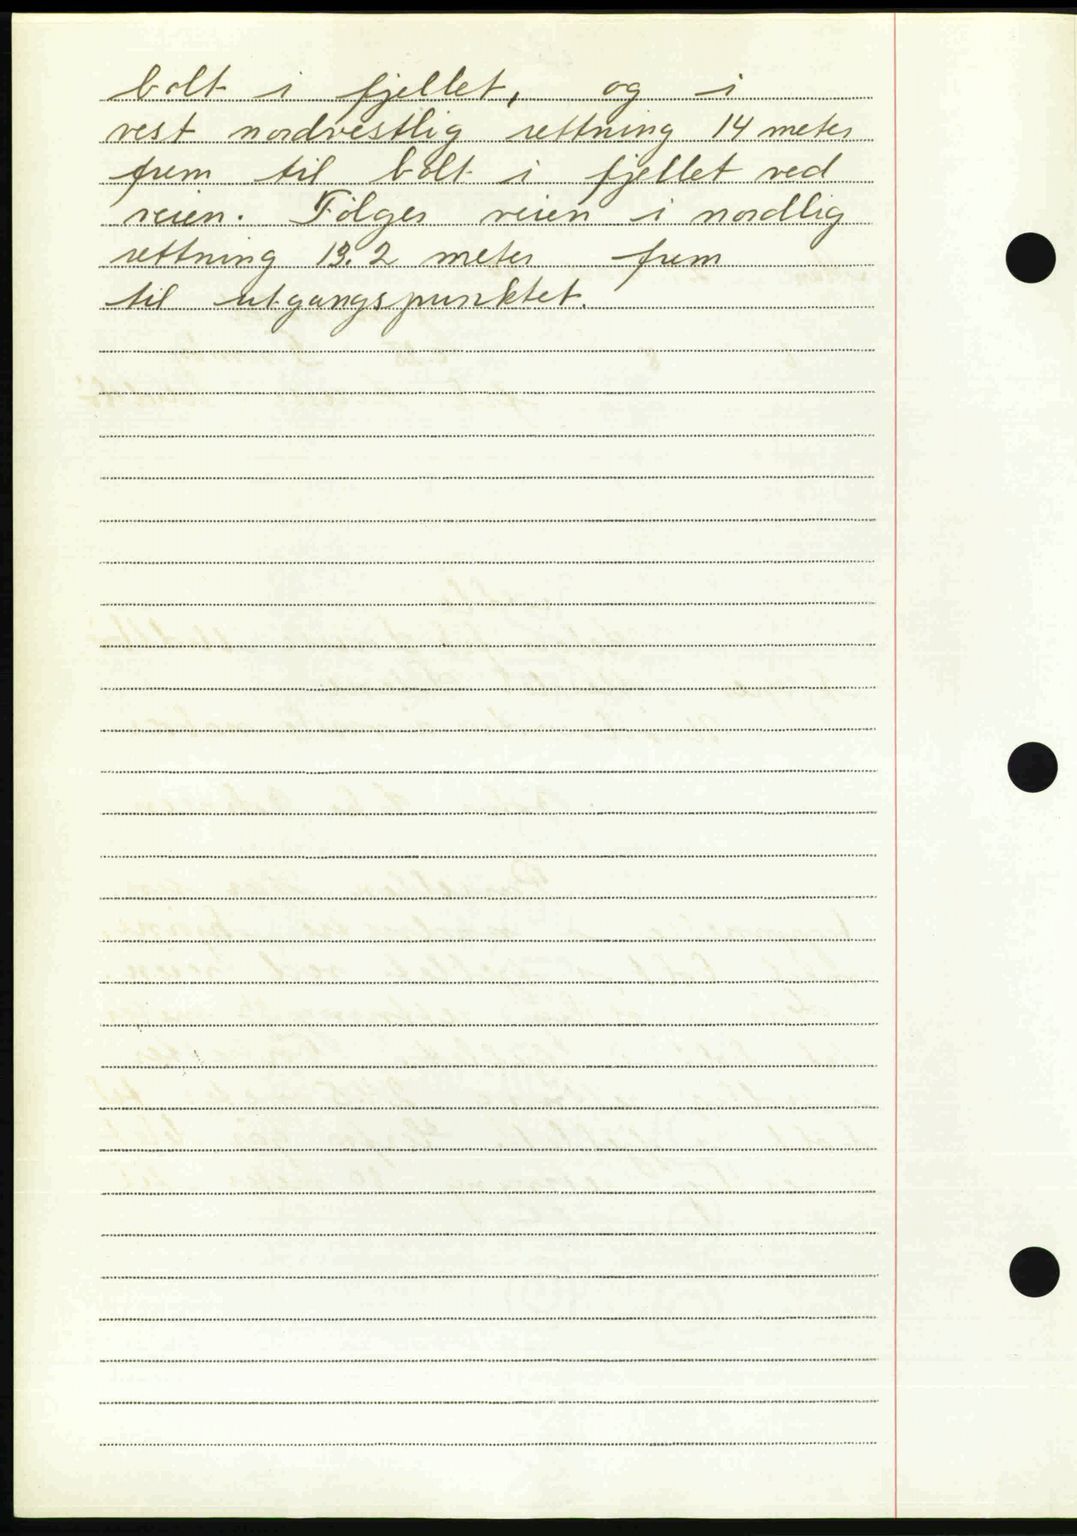 bolt i fjellet, og i
vest nordvestlig rettning 14 meter
frem til bolt i fjellet ved
veien. Følges veien i nordlig
rettning 13.2 meter frem
til utgangspunktet.